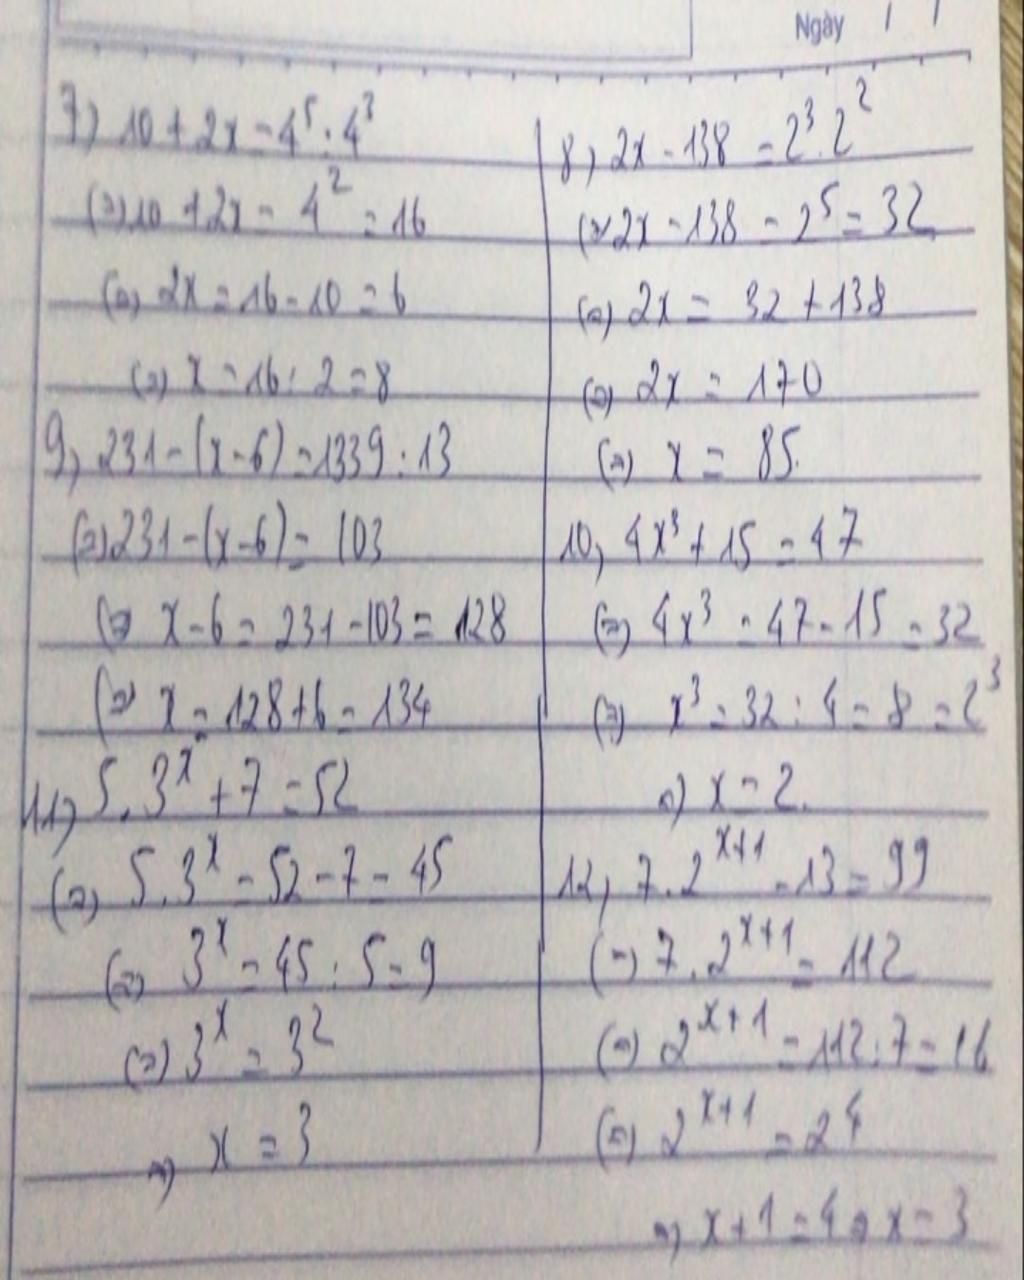 Ngày / /
7) 10 + 2x = 4⁵ : 4³
(=) 10 + 2x = 4² = 16
(=) 2x = 16 - 10 = 6
(=) x = 16 : 2 = 8
9) 231 - (x - 6) = 1339 : 13
(=) 231 - (x - 6) = 103
(=) x - 6 = 231 - 103 = 128
(=) x = 128 + 6 = 134
11) 5 . 3ˣ + 7 = 52
(=) 5 . 3ˣ = 52 - 7 = 45
(=) 3ˣ = 45 : 5 = 9
(=) 3ˣ = 3²
=) x = 3
8) 2x - 138 = 2³ . 2²
(=) 2x - 138 = 2⁵ = 32
(=) 2x = 32 + 138
(=) 2x = 170
(=) x = 85.
10) 4x³ + 15 = 47
(=) 4x³ = 47 - 15 = 32
(=) x³ = 32 : 4 = 8 = 2³
=) x = 2.
12) 7 . 2ˣ⁺¹ - 13 = 99
(=) 7 . 2ˣ⁺¹ = 112
(=) 2ˣ⁺¹ = 112 : 7 = 16
(=) 2ˣ⁺¹ = 2⁴
=) x + 1 = 4 => x = 3